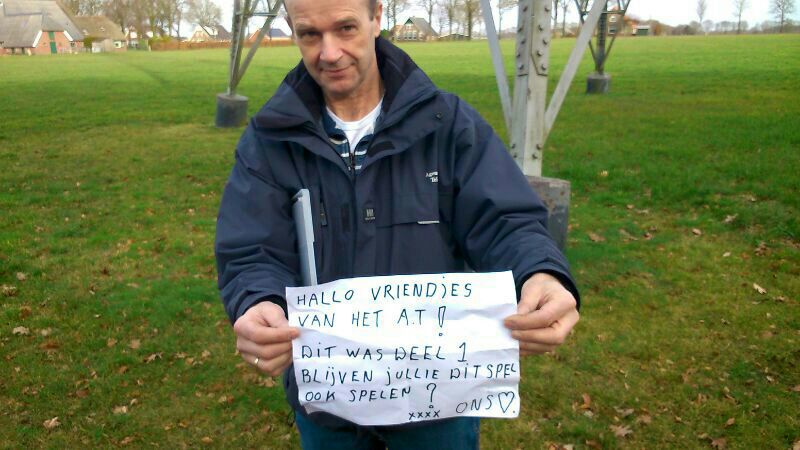 HALLO VRIENDJES
VAN HET A.T!
DIT WAS DEEL 1
BLIJVEN JULLIE DIT SPEL
OOK SPELEN?
xxxx ONS♡.